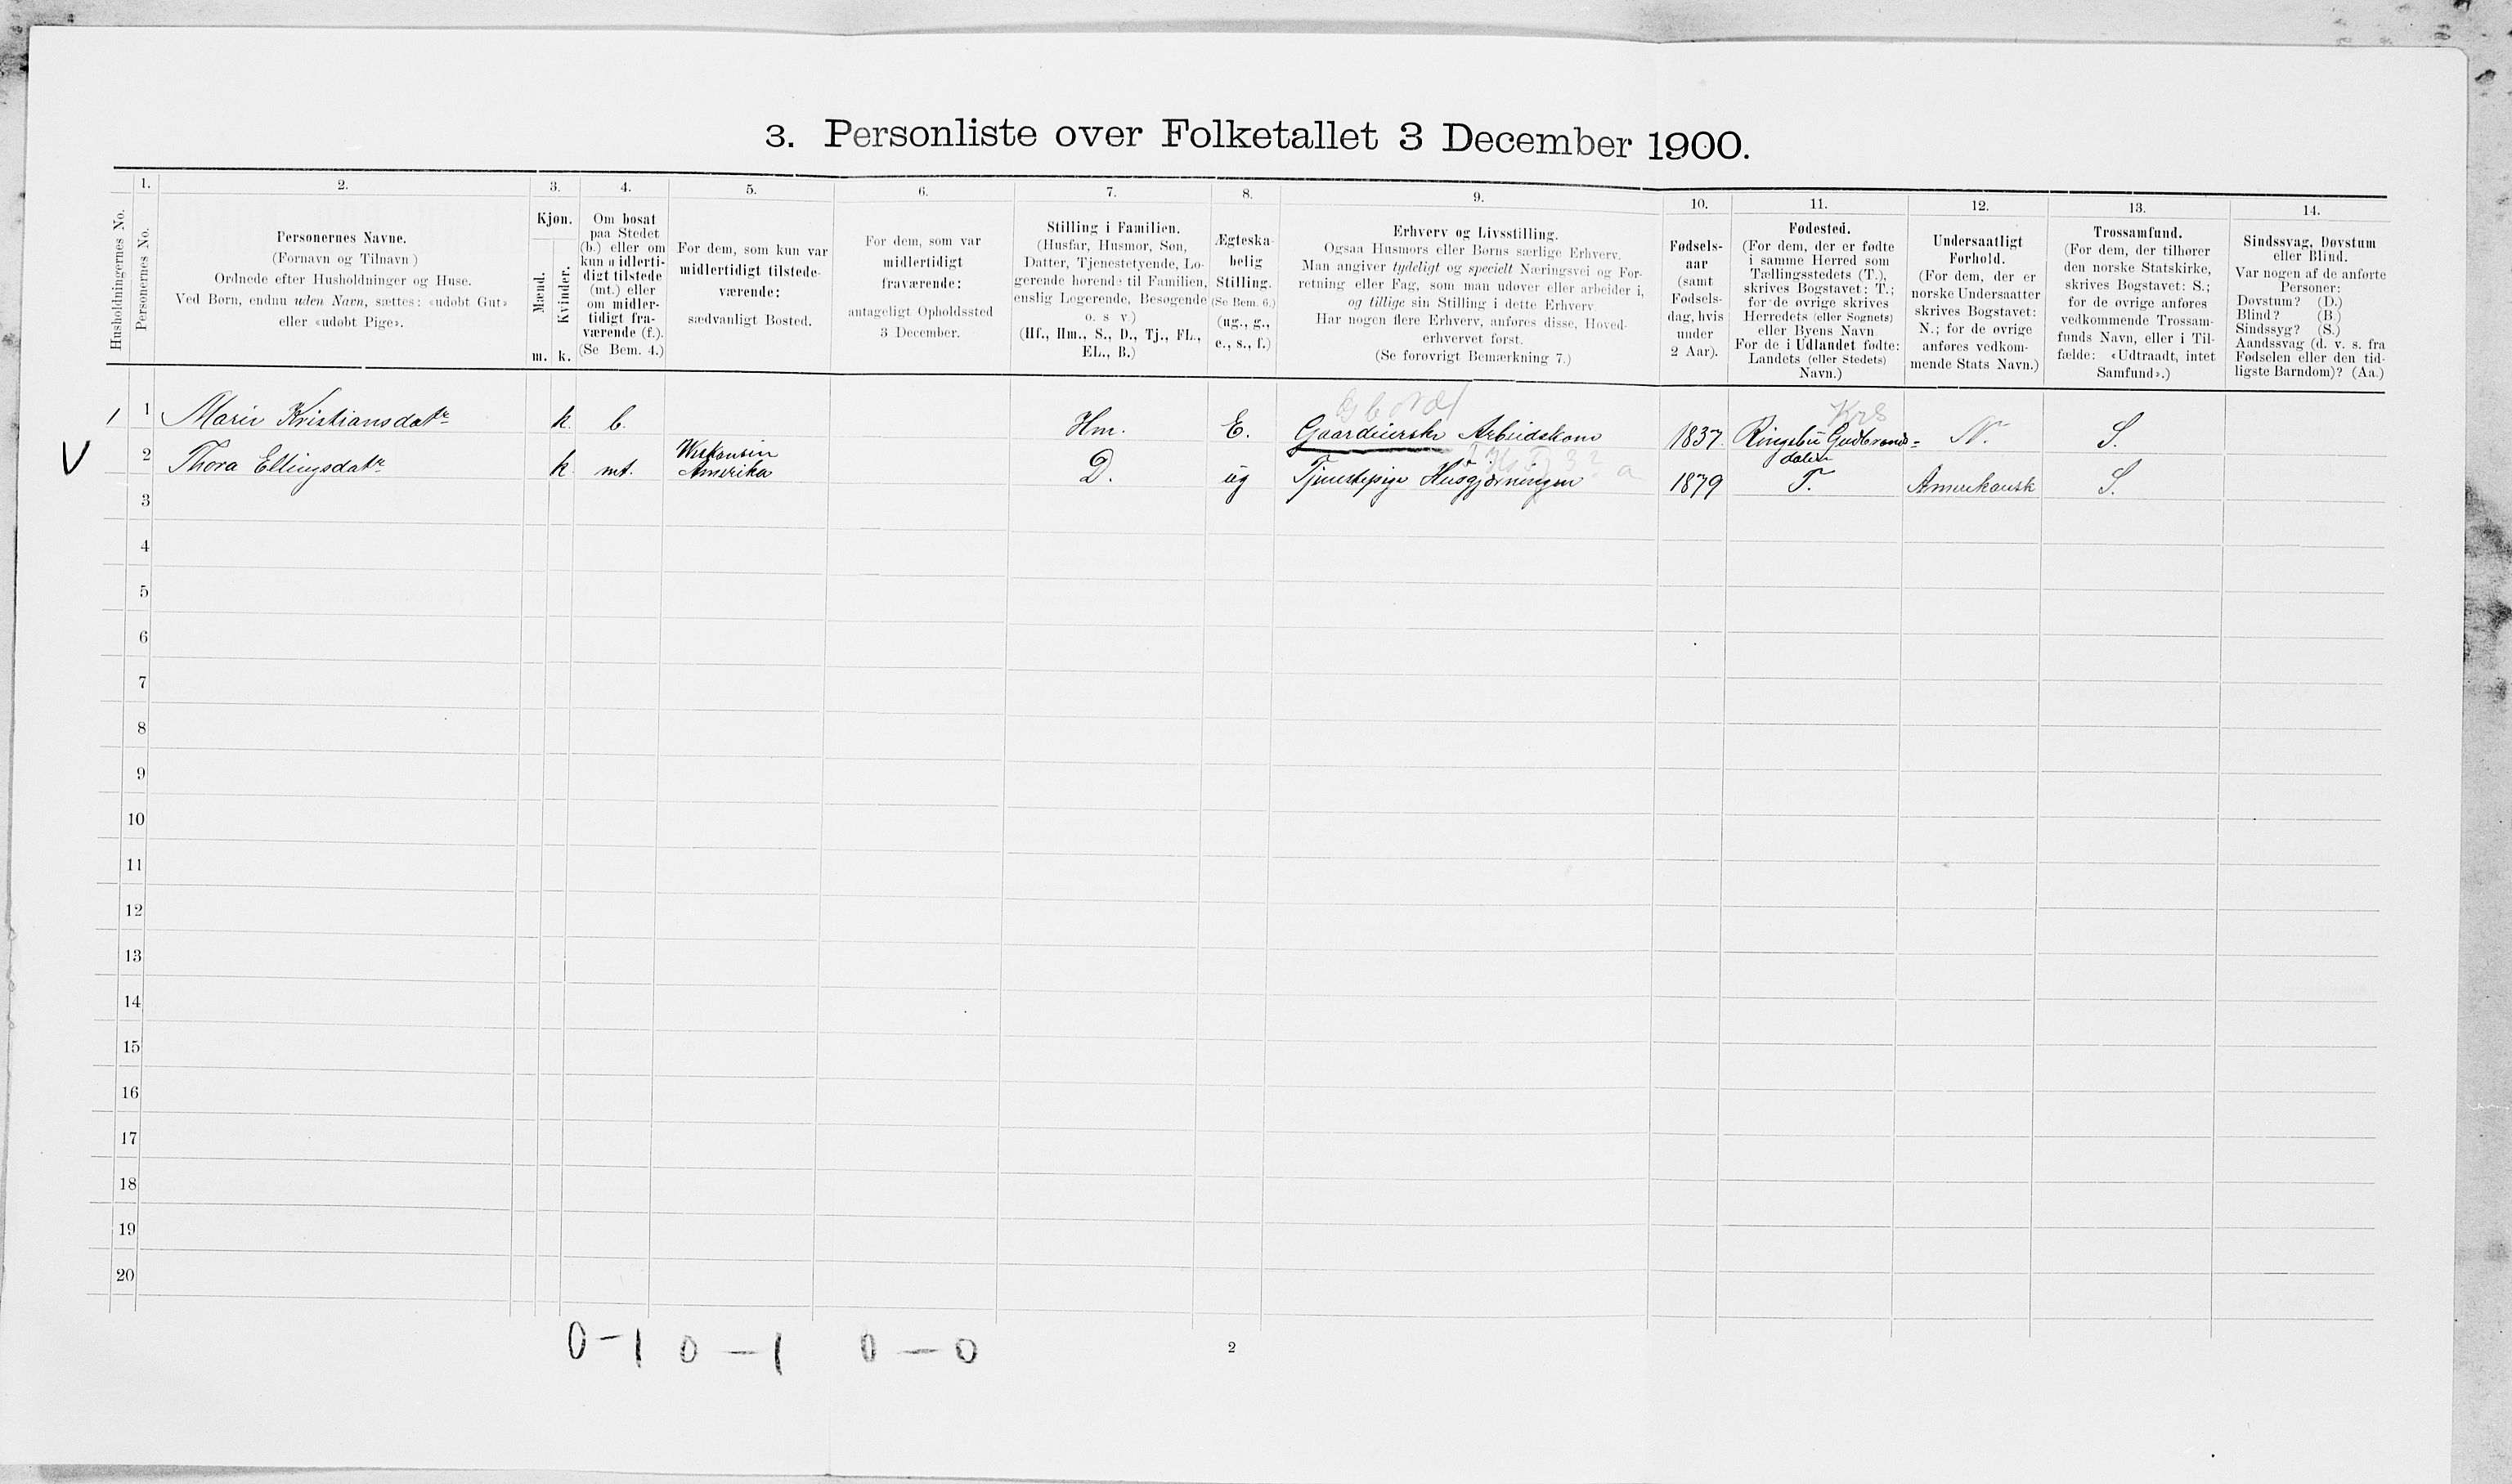 3. Personliste over Folketallet 3 December 1900.
Husholdningernes No.
1.
Personernes No.
2.
Personernes Navne.
(Fornavn og Tilnavn)
Ordnede efter Husholdninger og Huse.
Ved Børn, endnu uden Navn, sættes: «udøbt Gut»
eller «udøbt Pige».
3.
Kjøn.
Mænd.
Kvinder.
m. k.
4.
Om bosat
paa Stedet
(b.) eller om
kun midlerti-
digt tilstede
(mt.) eller
om midler-
tidigt fra-
værende (f.).
(Se Bem. 4.)
5.
For dem, som kun var
midlertidigt tilstede-
værende:
sædvanligt Bosted.
6.
For dem, som var
midlertidigt
fraværende:
antageligt Opholdssted
3 December.
7.
Stilling i Familien.
(Husfar, Husmor, Søn,
Datter, Tjenestetyende, Lo-
gerende hørende til Familien,
enslig Logerende, Besøgende
o. s. v.)
(Hf., Hm., S., D., Tj., FL.,
EL., B.)
8.
Ægteska-
belig
Stilling.
(Se Bem. 6.)
(ug., g.,
e., s., f.)
9.
Erhverv og Livsstilling.
Ogsaa Husmors eller Børns særlige Erhverv.
Man angiver tydeligt og specielt Næringsvei og For-
retning eller Fag, som man udøver eller arbeider i,
og tillige sin Stilling i dette Erhverv.
Har nogen flere Erhverv, anføres disse, Hoved-
erhvervet først.
(Se forøvrigt Bemærkning 7.)
10.
Fødsels-
aar
(samt
Fødsels-
dag, hvis
under
2 Aar).
11.
Fødested.
(For dem, der er fødte
i samme Herred som
Tællingsstedets (T.),
skrives Bogstavet: T.;
for de øvrige skrives
Herredets (eller Sognets)
eller Byens Navn.
For de i Udlandet fødte:
Landets (eller Stedets)
Navn.)
12.
Undersaatligt
Forhold.
(For dem, der er
norske Undersaatter
skrives Bogstavet:
N.; for de øvrige
anføres vedkom-
mende Stats Navn.)
13.
Trossamfund.
(For dem, der tilhører
den norske Statskirke,
skrives Bogstavet: S.;
for de øvrige anføres
vedkommende Trossam-
funds Navn, eller i Til-
fælde: «Udtraadt, intet
Samfund».)
14.
Sindssvag, Døvstum
eller Blind.
Var nogen af de anførte
Personer:
Døvstum? (D.)
Blind? (B.)
Sindssyg? (S.)
Aandssvag (d. v. s. fra
Fødselen eller den tid-
ligste Barndom)? (Aa.)
1 1 Marie Kristiansdatr k. b. Hm. E. Gaardeierske Arbeidskone 1837. Ringebu Gudbrands- N. S.
dalen
V 2 Thora Ellingsdatr k mt. Wiskonsin
Amerika D. ug Tjenestepige Husgjerningen 1879 T. Amerikansk S.
3
4
5
6
7
8
9
10
11
12
13
14
15
16
17
18
19
20
0-1 0-1 0-0
2